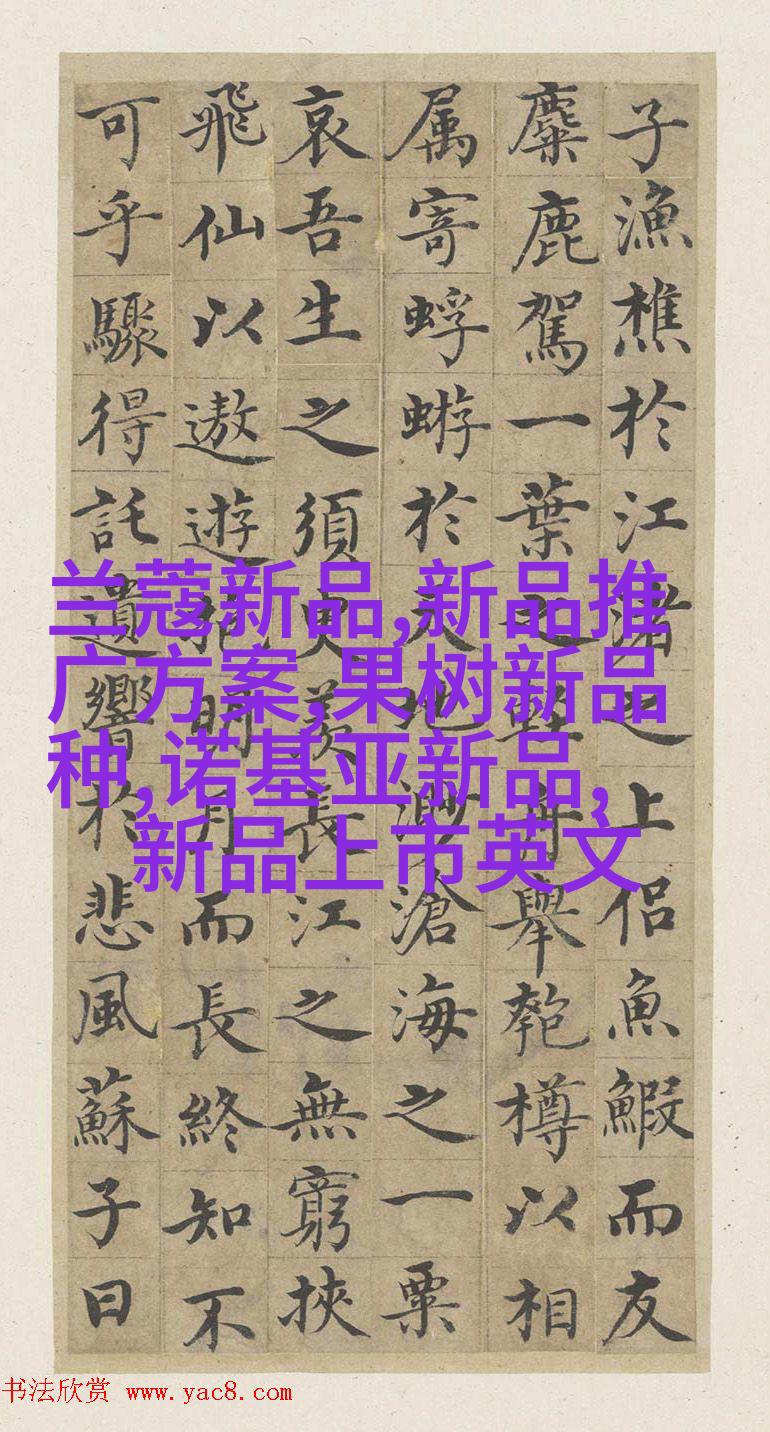 子漁樵於江渚之上侣魚鰕而友
麋鹿駕一葉之輕舟舉匏樽以相
属寄蜉蝣於天地渺滄海之一粟
哀吾生之須臾羨長江之無窮挾
飛仙以遨遊抱明月而長終知不
可乎驟得託遺響於悲風蘇子曰
兰蔻新品,新品推
广方案,果树新品
种,诺基亚新品,
新品上市英文
书法欣赏 www.yac8.com